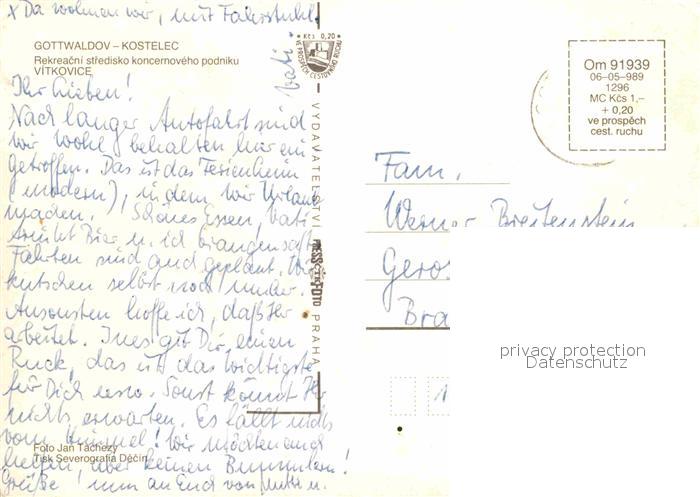 x Da wohnen wir, mit Fahrstuhl.
GOTTWALDOV – KOSTELEC
Rekreační středisko koncernového podniku
VÍTKOVICE
Kčs 0,20
VE PROSPĚCH CESTOVNÍHO RUCHU
Ihr Lieben!
Nach langer Autofahrt sind
wir wohl behalten hier ein
getroffen. Das ist das Ferienheim
(modern), in dem wir Urlaub
machen. Schönes Essen, Vati
trinkt Bier u. ich Orangensaft
Fahrten sind auch geplant. Wir
kutschen selbst noch umher.
Ansonsten hoffe ich, daß Ihr
arbeitet. Ines gib Dir einen
Ruck, das ist das wichtigste
für Dich usw. Sonst könnt Ihr
nichts erwarten. Es fällt nichts
vom Himmel! Wir möchten auch
helfen, aber keinen Bummlern!
Grüße! nun an Euch von Mutti u.
Vati.
Foto Jan Tachezy
Tisk Severografia Děčín
VYDAVATELSTVÍ PRESSFOTO PRAHA
Om 91939
06-05-989
1296
MC Kčs 1,–
+ 0,20
ve prospěch
cest. ruchu
Fam.
Werner Breitenstein
Gero
Bra
1
privacy protection
Datenschutz